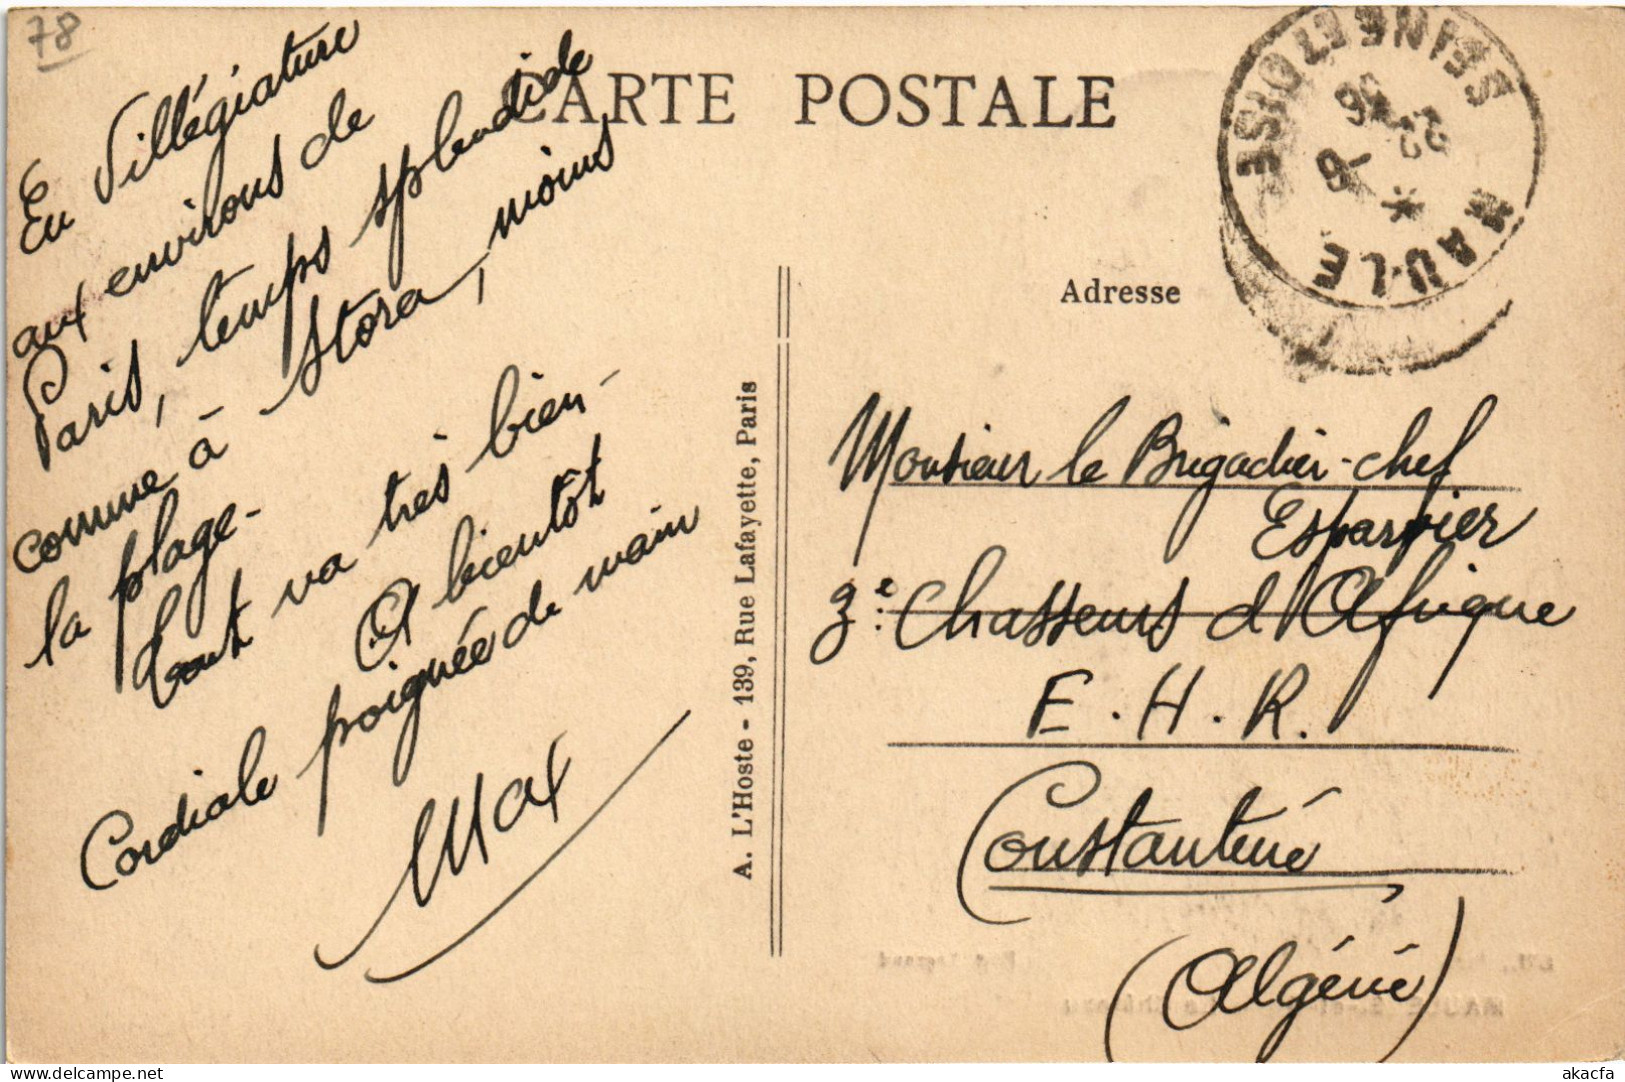 78
CARTE POSTALE
En Villégiature
aux environs de
Paris, temps splendide
comme à Stora, moins
la plage -
tout va très bien -
A bientôt
Cordiale poignée de main
Max
A. L'Hoste - 139, Rue Lafayette, Paris
SEINE ET OISE
MAULE
Adresse
Monsieur le Brigadier-chef
Esparvier
3e: Chasseurs d'Afrique
E. H. R.
Constantine
(Algérie)
akacfa